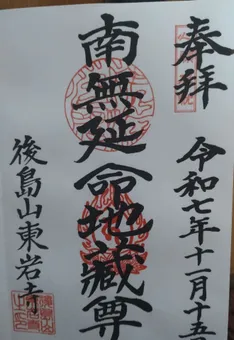 奉拝
令和七年十一月十五
南無延命地藏尊
後島山東岩寺